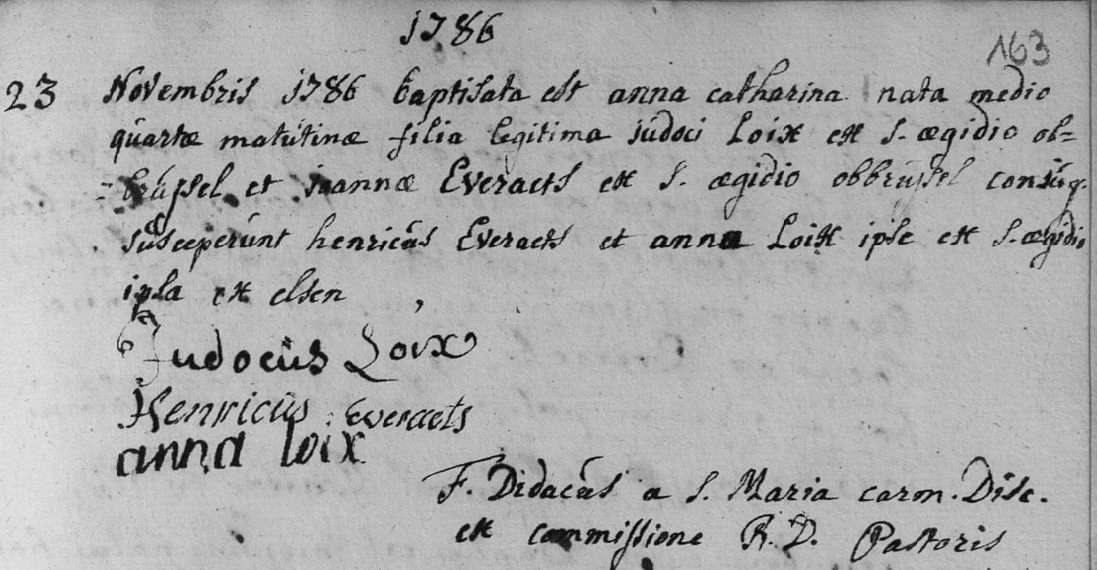 1786
163
23 Novembris 1786 baptisata est anna catharina nata medio
quartæ matutinæ filia legitima judoci Loix ex S. ægidio ob=
=brussel et joannæ Everaets ex S. ægidio obbrussel conjug.
susceperunt henricus Everaets et anna Loix ipse ex S. ægidio
ipsa ex elsen
Judocus Loix
Henricus Everaets
anna loix
F. Didacus a S. Maria carm. Disc.
ex commissione R. D. Pastoris